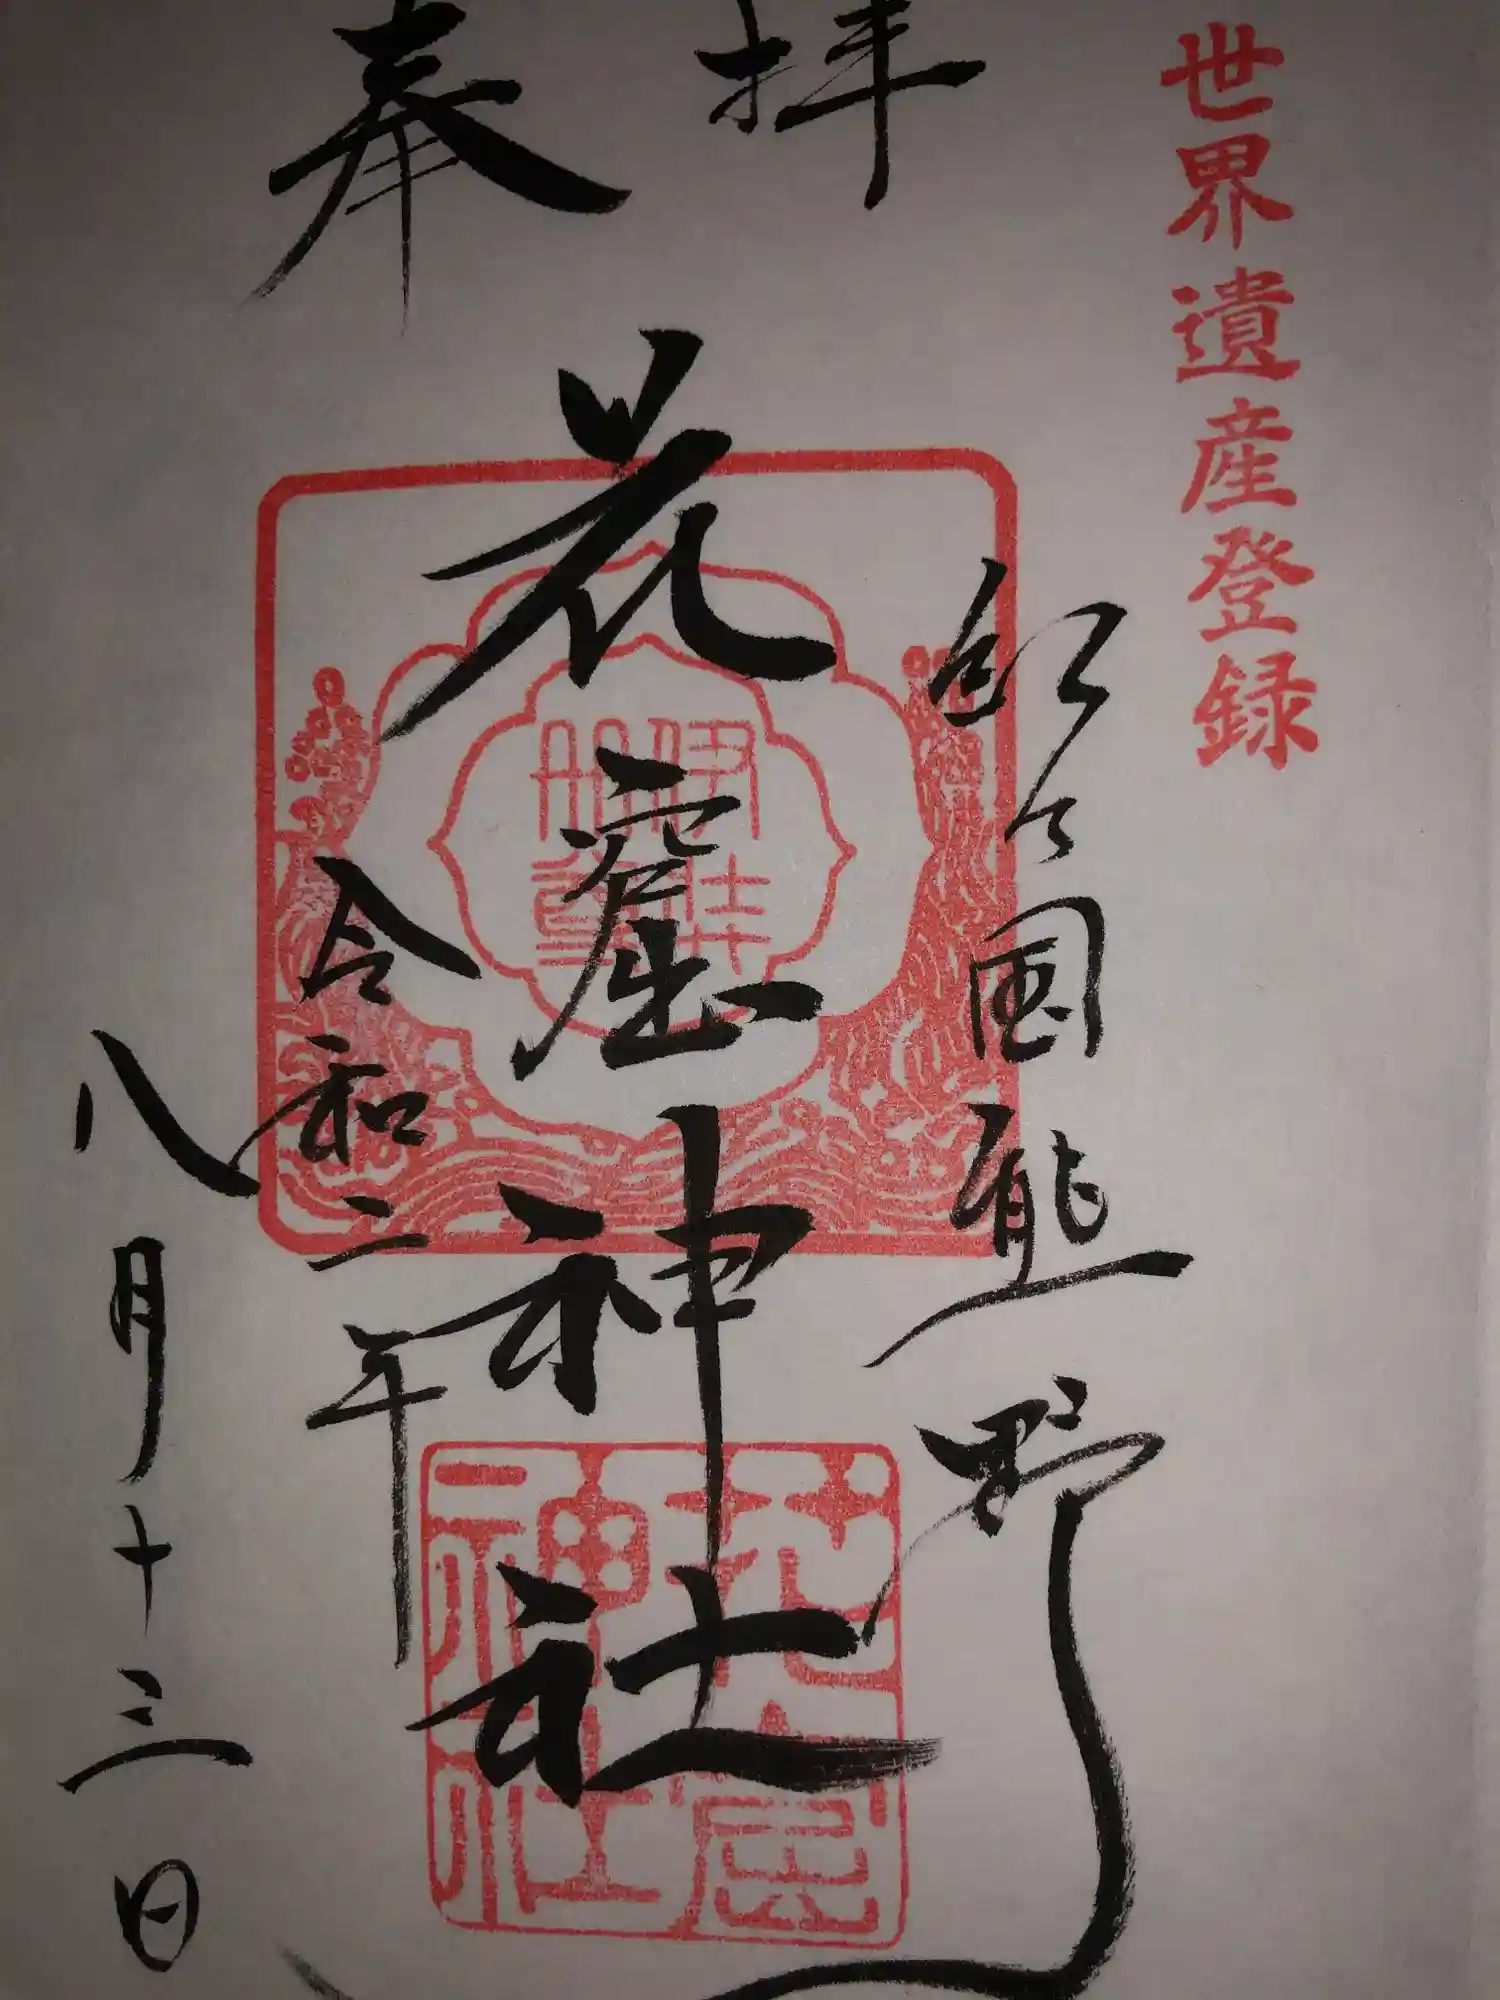 世界遺産登録
奉拝
紀の国熊野
花窟神社
伊弉冊尊
花窟神社
令和二年
八月十三日